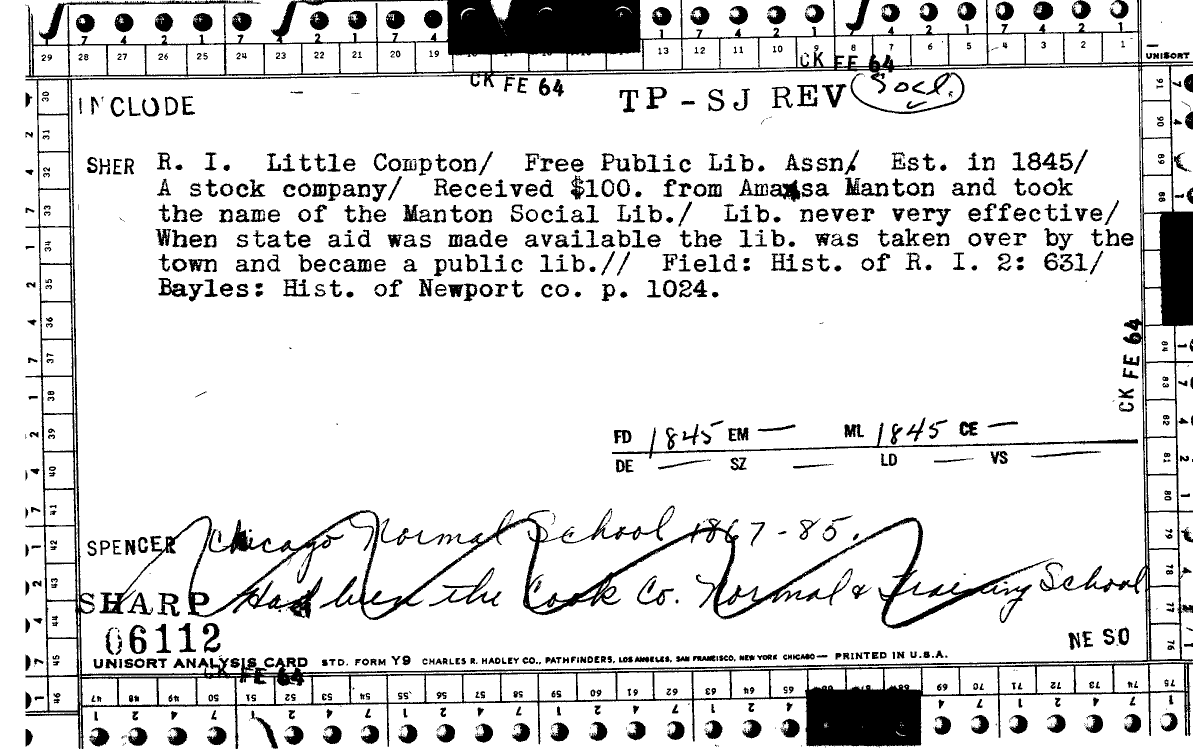 7 4 2 1 7 4 2 1 7 4 1 7 4 2 1 7 4 2 1 7 4 2 1
29 28 27 26 25 24 23 22 21 20 19 13 12 11 10 9 8 7 6 5 4 3 2 1 UNISORT
CK FE 64
CK FE 64
INCLUDE TP - SJ REV Socl.
SHER R. I. Little Compton/ Free Public Lib. Assn/ Est. in 1845/
A stock company/ Received $100. from Amasa Manton and took
the name of the Manton Social Lib./ Lib. never very effective/
When state aid was made available the lib. was taken over by the
town and became a public lib.// Field: Hist. of R. I. 2: 631/
Bayles: Hist. of Newport co. p. 1024.
CK FE 64
FD 1845 EM — ML 1845 CE —
DE — SZ — LD — VS —
SPENCER Chicago Normal School 1867-85.
SHARP Had been the Cook Co. Normal & Training School
06112
NE SO
UNISORT ANALYSIS CARD STD. FORM Y9 CHARLES R. HADLEY CO., PATHFINDERS, LOS ANGELES, SAN FRANCISCO, NEW YORK CHICAGO — PRINTED IN U.S.A.
CK FE 64
30 31 32 33 34 35 36 37 38 39 40 41 42 43 44 45 46
47 48 49 50 51 52 53 54 55 56 57 58 59 60 61 62 63 64 65 69 70 71 72 73 74 75
91 90 89 88 84 83 82 81 80 79 78 77 76